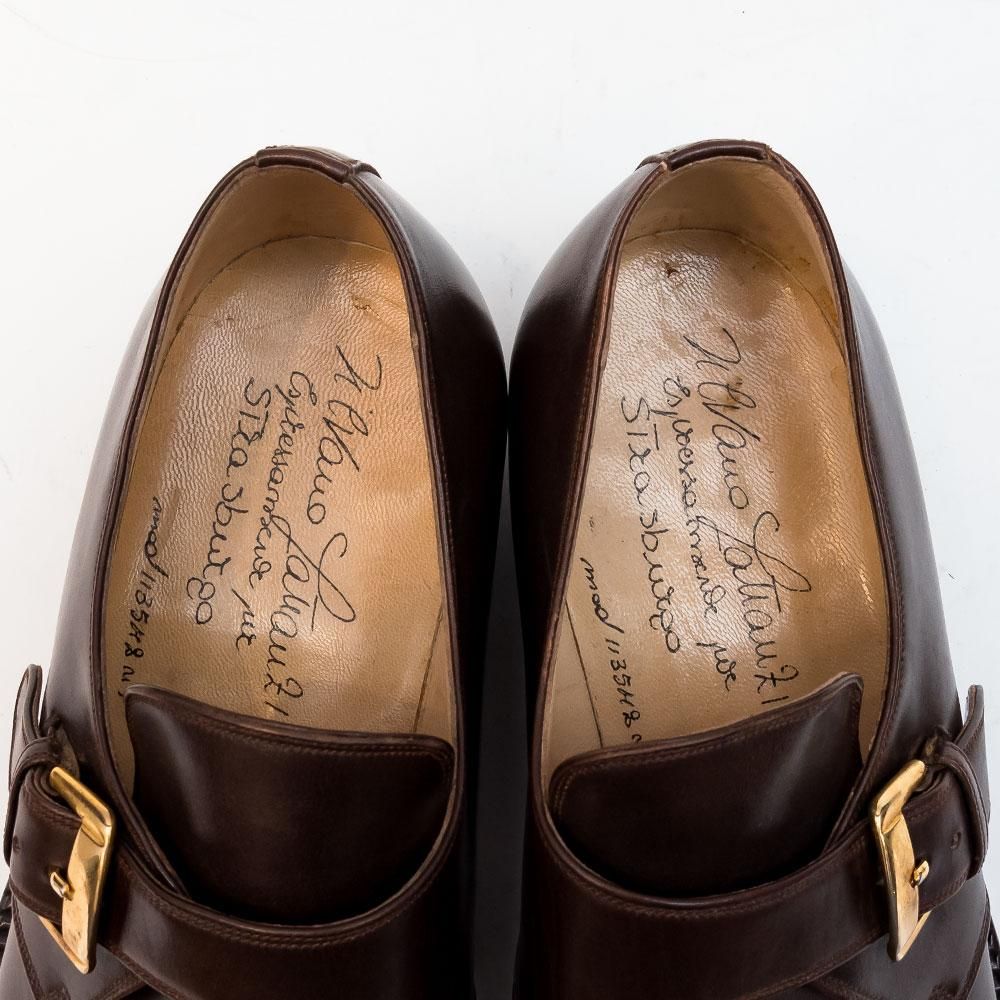 Silvano Lattanzi
Espressamente per
Strasburgo
mod 113542
Silvano Lattanzi
Espressamente per
Strasburgo
mod 113542